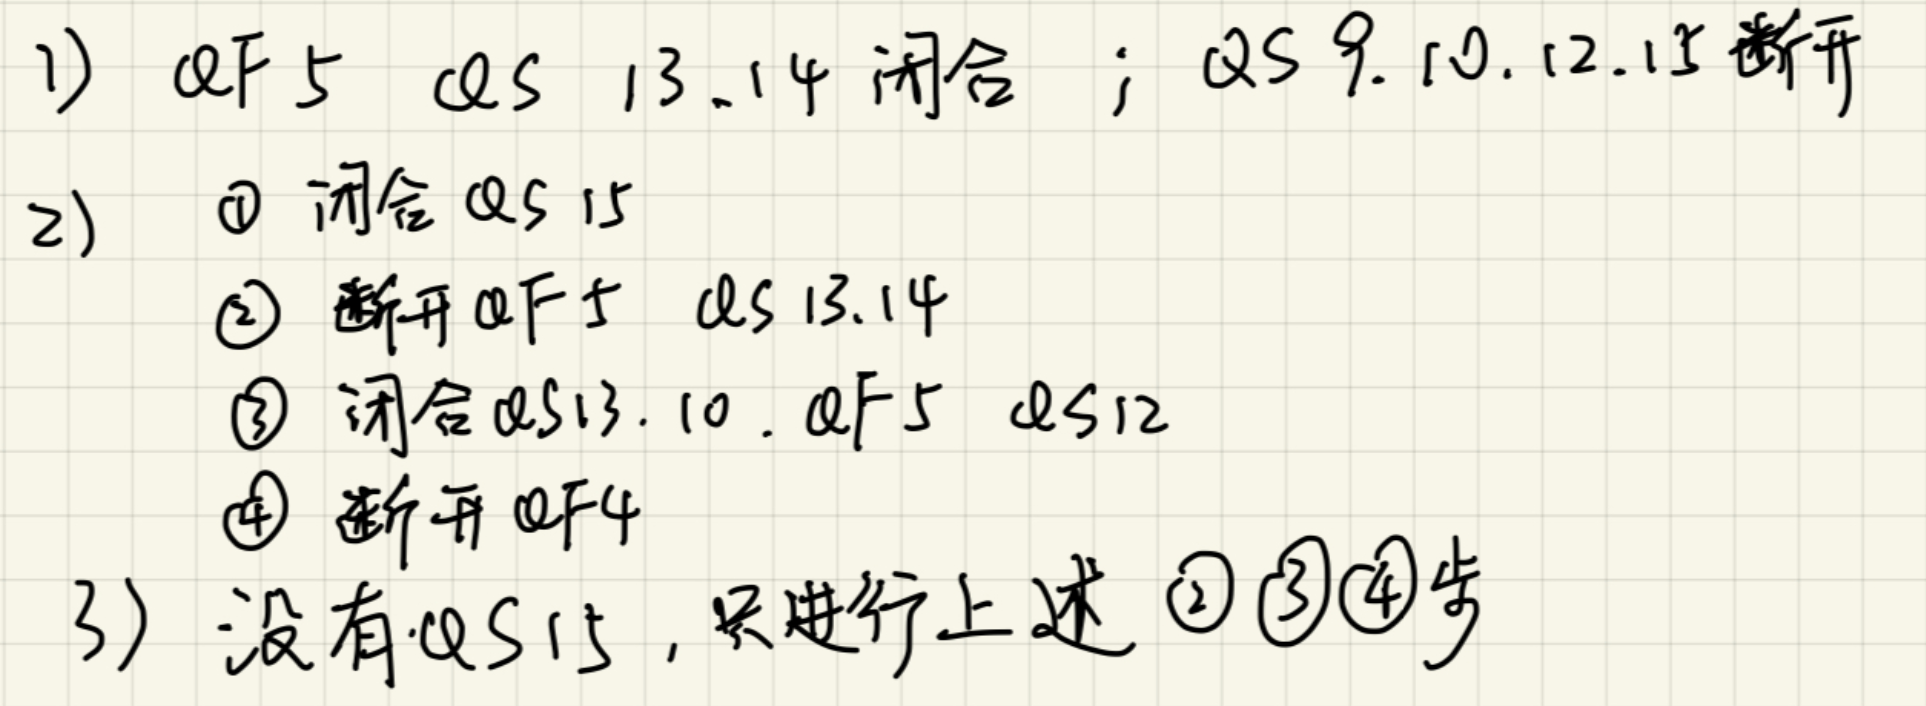 1) QF5 QS 13.14 闭合 ; QS 9.10.12.15 断开
2) ① 闭合 QS 15
② 断开 QF5 QS 13.14
③ 闭合 QS13.10. QF5 QS12
④ 断开 QF4
3) 没有.QS15 , 只进行上述 ②③④步